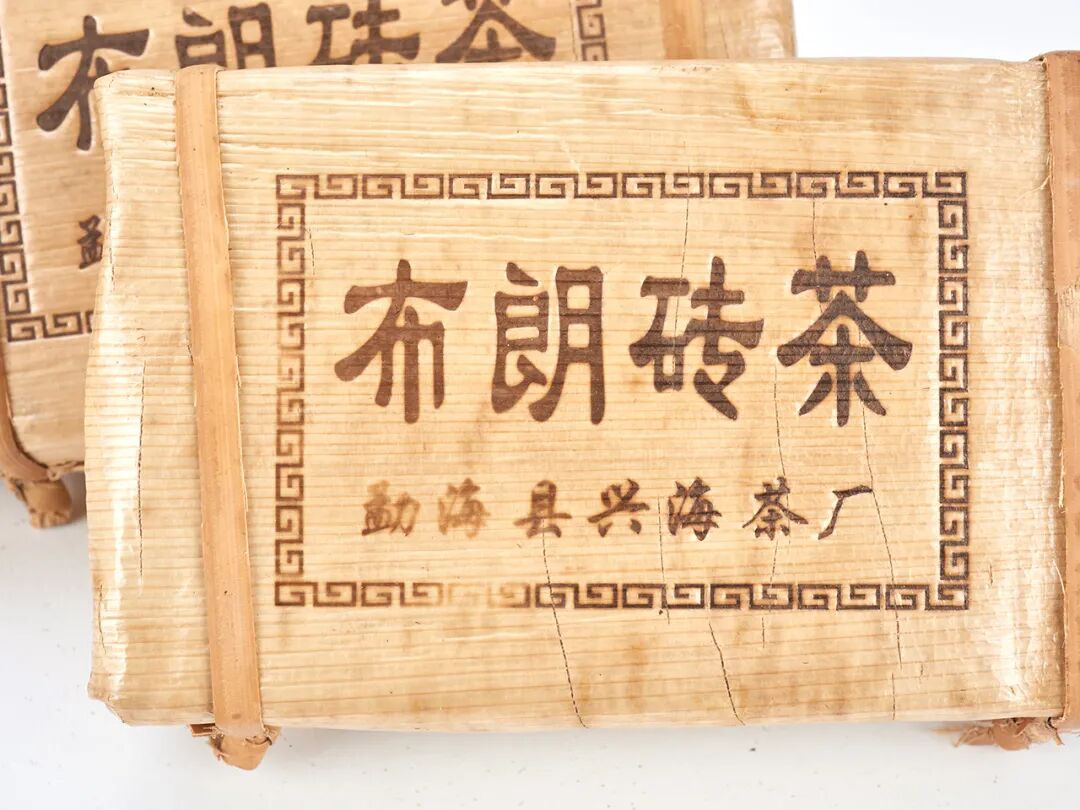 布朗砖茶
孟
布朗砖茶
勐海县兴海茶厂